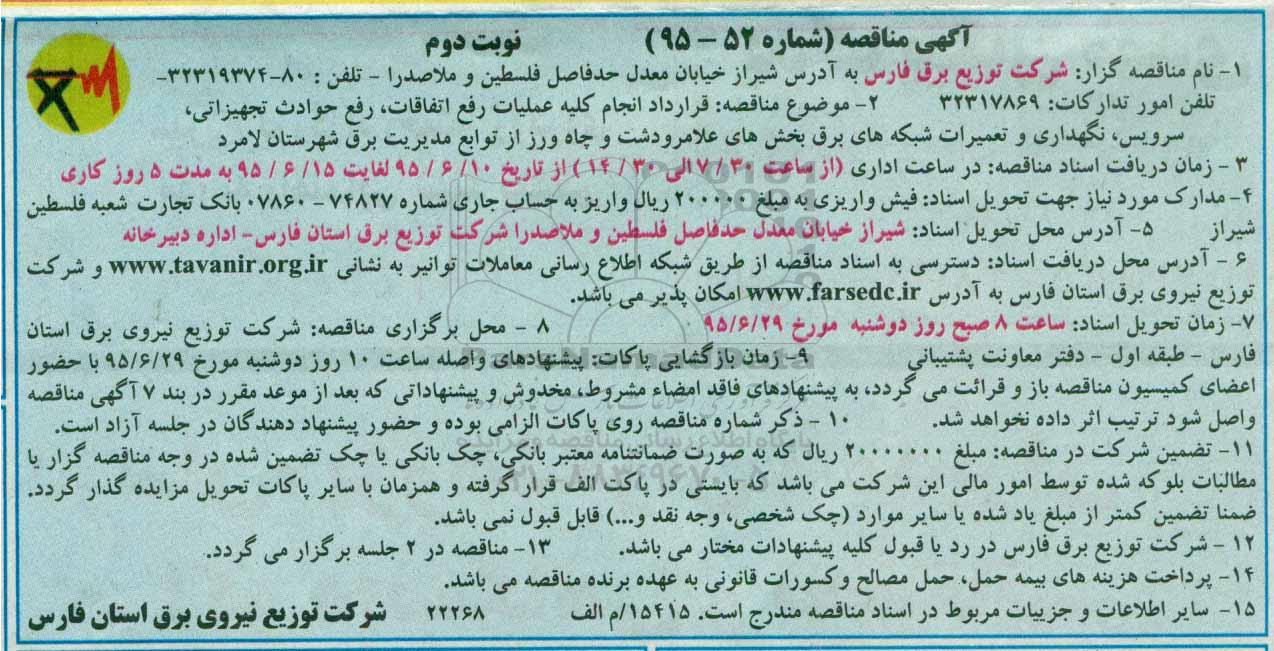 آگهی مناقصه (شماره ۵۲ – ۹۵) نوبت دوم
۱- نام مناقصه گزار: شرکت توزیع برق فارس به آدرس شیراز خیابان معدل حدفاصل فلسطین و ملاصدرا – تلفن : ۸۰-۳۲۳۱۹۳۷۴-
تلفن امور تدارکات: ۳۲۳۱۷۸۶۹ ۲- موضوع مناقصه: قرارداد انجام کلیه عملیات رفع اتفاقات، رفع حوادث تجهیزاتی،
سرویس، نگهداری و تعمیرات شبکه های برق بخش های علامرودشت و چاه ورز از توابع مدیریت برق شهرستان لامرد
۳ – زمان دریافت اسناد مناقصه: در ساعت اداری (از ساعت ۳۰ / ۷ الی ۳۰ / ۱۴ ) از تاریخ ۱۰/ ۶ / ۹۵ لغایت ۱۵/ ۶ / ۹۵ به مدت ۵ روز کاری
۴- مدارک مورد نیاز جهت تحویل اسناد: فیش واریزی به مبلغ ۲۰۰۰۰۰ ریال واریز به حساب جاری شماره ۷۴۸۲۷ – ۰۷۸۶۰ بانک تجارت شعبه فلسطین
شیراز ۵- آدرس محل تحویل اسناد: شیراز خیابان معدل حدفاصل فلسطین و ملاصدرا شرکت توزیع برق استان فارس- اداره دبیرخانه
۶ – آدرس محل دریافت اسناد: دسترسی به اسناد مناقصه از طریق شبکه اطلاع رسانی معاملات توانیر به نشانی www.tavanir.org.ir و شرکت
توزیع نیروی برق استان فارس به آدرس www.farsedc.ir امکان پذیر می باشد.
۷- زمان تحویل اسناد: ساعت ۸ صبح روز دوشنبه مورخ ۹۵/۶/۲۹ ۸ – محل برگزاری مناقصه: شرکت توزیع نیروی برق استان
فارس – طبقه اول – دفتر معاونت پشتیبانی ۹- زمان بازگشایی پاکات: پیشنهادهای واصله ساعت ۱۰ روز دوشنبه مورخ ۹۵/۶/۲۹ با حضور
اعضای کمیسیون مناقصه باز و قرائت می گردد، به پیشنهادهای فاقد امضاء مشروط، مخدوش و پیشنهاداتی که بعد از موعد مقرر در بند ۷ آگهی مناقصه
واصل شود ترتیب اثر داده نخواهد شد. ۱۰ – ذکر شماره مناقصه روی پاکات الزامی بوده و حضور پیشنهاد دهندگان در جلسه آزاد است.
۱۱- تضمین شرکت در مناقصه: مبلغ ۲۰۰۰۰۰۰۰ ریال که به صورت ضمانتنامه معتبر بانکی، چک بانکی یا چک تضمین شده در وجه مناقصه گزار یا
مطالبات بلوکه شده توسط امور مالی این شرکت می باشد که بایستی در پاکت الف قرار گرفته و همزمان با سایر پاکات تحویل مزایده گذار گردد.
ضمنا تضمین کمتر از مبلغ یاد شده یا سایر موارد (چک شخصی، وجه نقد و...) قابل قبول نمی باشد.
۱۲ – شرکت توزیع برق فارس در رد یا قبول کلیه پیشنهادات مختار می باشد. ۱۳- مناقصه در ۲ جلسه برگزار می گردد.
۱۴- پرداخت هزینه های بیمه حمل، حمل مصالح و کسورات قانونی به عهده برنده مناقصه می باشد.
۱۵- سایر اطلاعات و جزییات مربوط در اسناد مناقصه مندرج است. ۱۵۴۱۵/م الف ۲۲۲۶۸ شرکت توزیع نیروی برق استان فارس